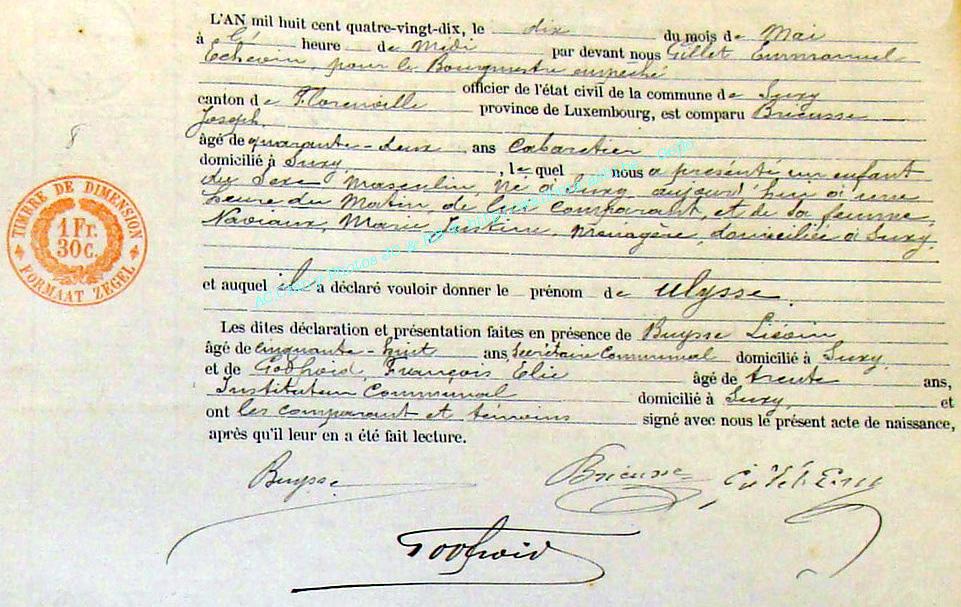 L'AN mil huit cent quatre-vingt-dix, le dix du mois de Mai
à heure de Midi par devant nous Gillet Emmanuel
Echevin, pour le Bourgmestre empeché
officier de l'état civil de la commune de Suxy
canton de Florenville province de Luxembourg, est comparu Brieusse
Joseph
âgé de quarante-deux ans Cabaretier
domicilié à Suxy, lequel nous a présenté un enfant
du Sexe Masculin, né à Suxy aujourd'hui à une
heure du Matin, de lui comparant, et de Sa femme
Naviaux, Marie, Justine, Menagère, domiciliée à Suxy.
et auquel il a déclaré vouloir donner le prénom de Ulysse.
Les dites déclaration et présentation faites en présence de Buysse
âgé de cinquante-huit ans, Secrétaire Communal domicilié à Suxy
et de Godfroid, François Elie âgé de trente ans,
Instituteur Communal domicilié à Suxy, et
ont les comparant et témoins signé avec nous le présent acte de naissance,
après qu'il leur en a été fait lecture.
Buysse Brieusse
Godfroid
TIMBRE DE DIMENSION
1 Fr.
30 C.
FORMAAT ZEGEL